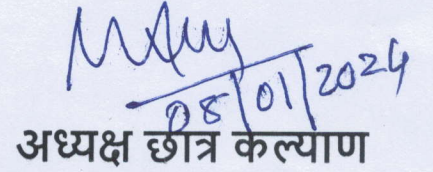 08/01/2024
अध्यक्ष छात्र कल्याण